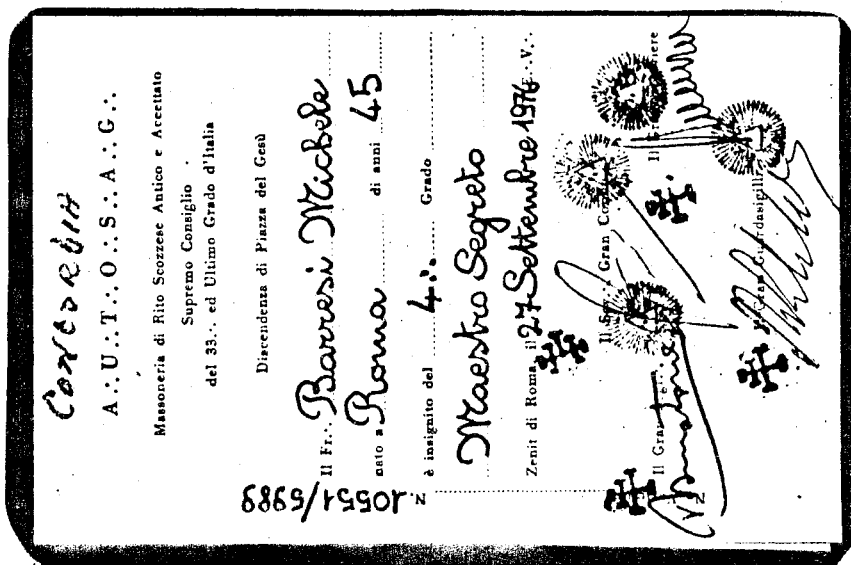 CONCORDIA
A∴U∴T∴O∴S∴A∴G∴
Massoneria di Rito Scozzese Antico e Accettato
Supremo Consiglio
del 33∴ ed Ultimo Grado d'Italia
Discendenza di Piazza del Gesù
Il Fr∴ Barresi Michele
nato a Roma di anni 45
è insignito del 4∴ Grado
Maestro Segreto
Zenit di Roma, il 27 Settembre 1976 E∴V∴
Il Sov∴ Gran Il Gran
Il Gran Il Gran Guardasigilli
N. 10551/5989